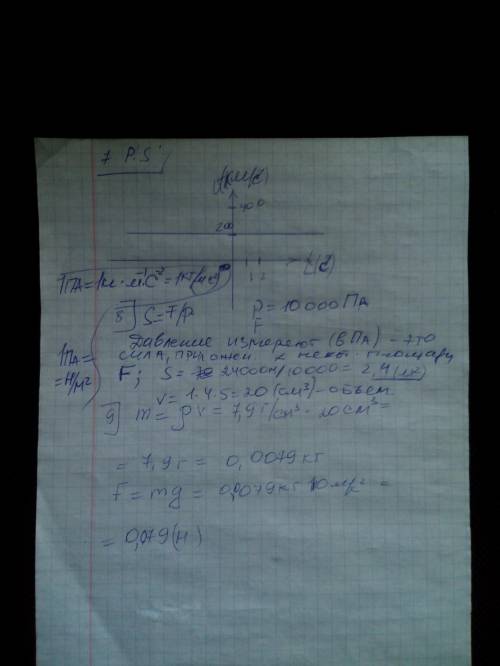 7 P.S.
V(км/с)
400
200
1 2
t(с)
1ПА=1кг·м⁻¹·С⁻²=1кг/(м·с²)
8] S=F/P
P=10000ПА
F
1ПА=
=Н/м²
Давление измеряют (в ПА) - это
сила, прилож. к некот. площади
F; S= 24000Н/10000= 2,4(м²)
V=1·4·5=20(см³)-объём
9] m=ρV=7,9г/см³·20см³=
=7,9г=0,0079кг
F=mg=0,0079кг·10м/с²=
=0,079(Н)